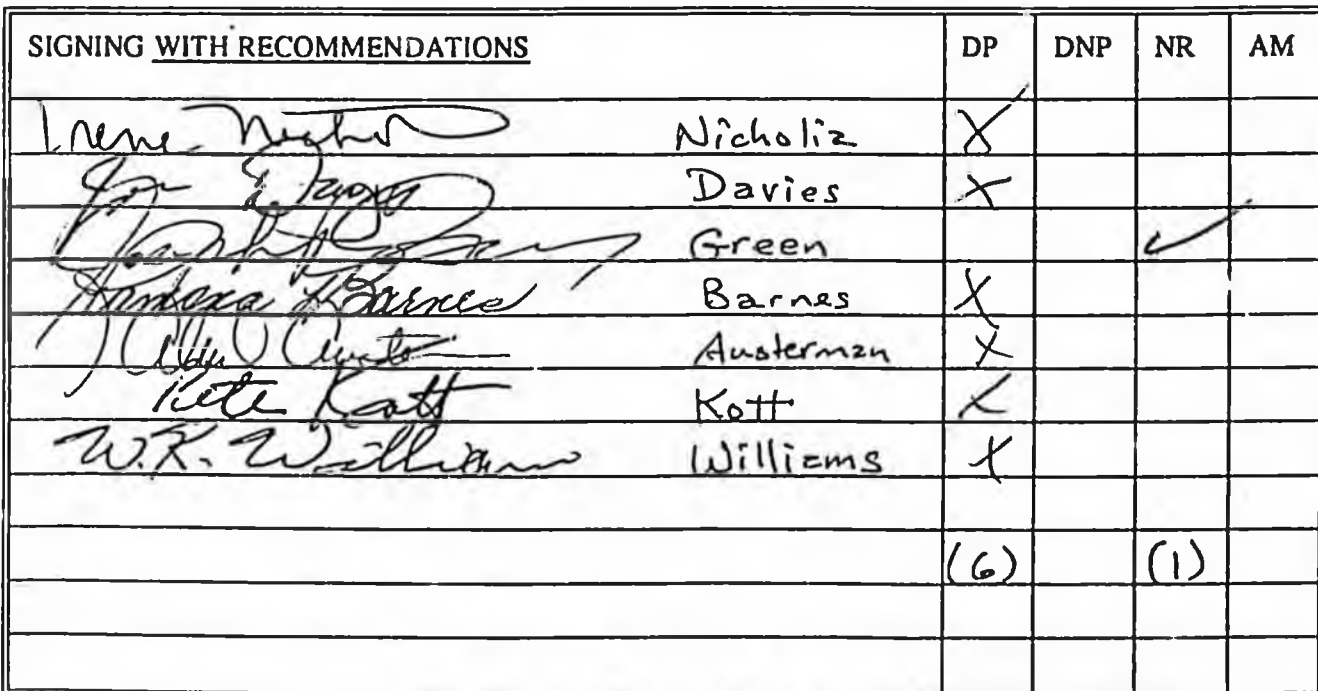 SIGNING WITH RECOMMENDATIONS DP DNP NR AM
Irene Nicholia X
Davies X
Green ✓
Ramona L Barnes Barnes X
Austerman X
Pete Kott Kott X
W.K. Williams Williams X
(6) (1)